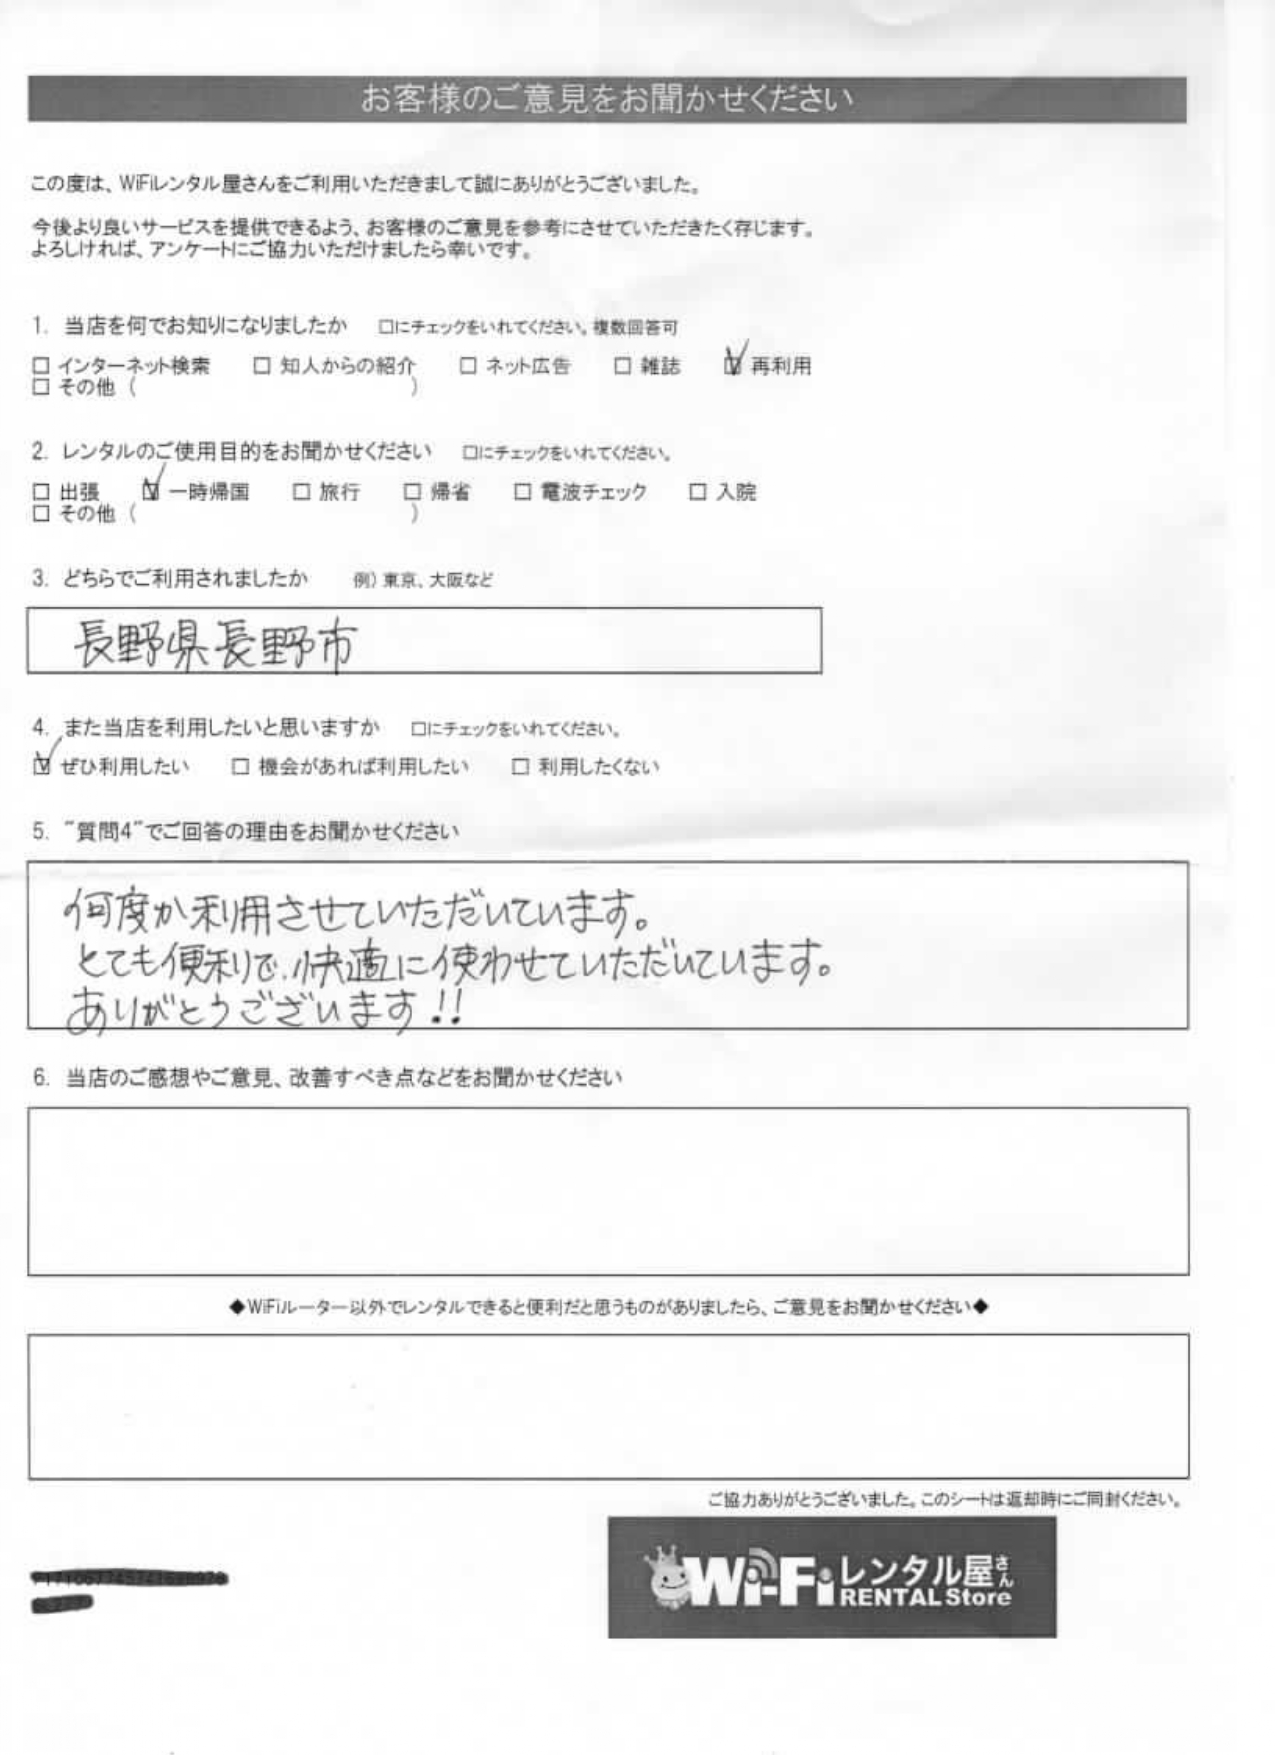 お客様のご意見をお聞かせください
この度は、WiFiレンタル屋さんをご利用いただきまして誠にありがとうございました。
今後より良いサービスを提供できるよう、お客様のご意見を参考にさせていただきたく存じます。
よろしければ、アンケートにご協力いただけましたら幸いです。
1. 当店を何でお知りになりましたか ☐にチェックをいれてください。複数回答可
☐ インターネット検索 ☐ 知人からの紹介 ☐ ネット広告 ☐ 雑誌 ☑ 再利用
☐ その他 ( )
2. レンタルのご使用目的をお聞かせください ☐にチェックをいれてください。
☐ 出張 ☑ 一時帰国 ☐ 旅行 ☐ 帰省 ☐ 電波チェック ☐ 入院
☐ その他 ( )
3. どちらでご利用されましたか 例) 東京、大阪など
長野県長野市
4. また当店を利用したいと思いますか ☐にチェックをいれてください。
☑ ぜひ利用したい ☐ 機会があれば利用したい ☐ 利用したくない
5. ”質問4”でご回答の理由をお聞かせください
何度か利用させていただいています。
とても便利で、快適に使わせていただいています。
ありがとうございます!!
6. 当店のご感想やご意見、改善すべき点などをお聞かせください
◆WiFiルーター以外でレンタルできると便利だと思うものがありましたら、ご意見をお聞かせください◆
ご協力ありがとうございました。このシートは返却時にご同封ください。
Wi-Fiレンタル屋さん
RENTAL Store